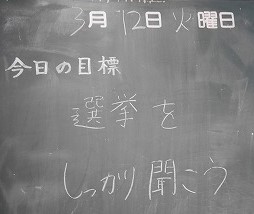 3月12日火曜日
今日の目標
選挙を
しっかり聞こう